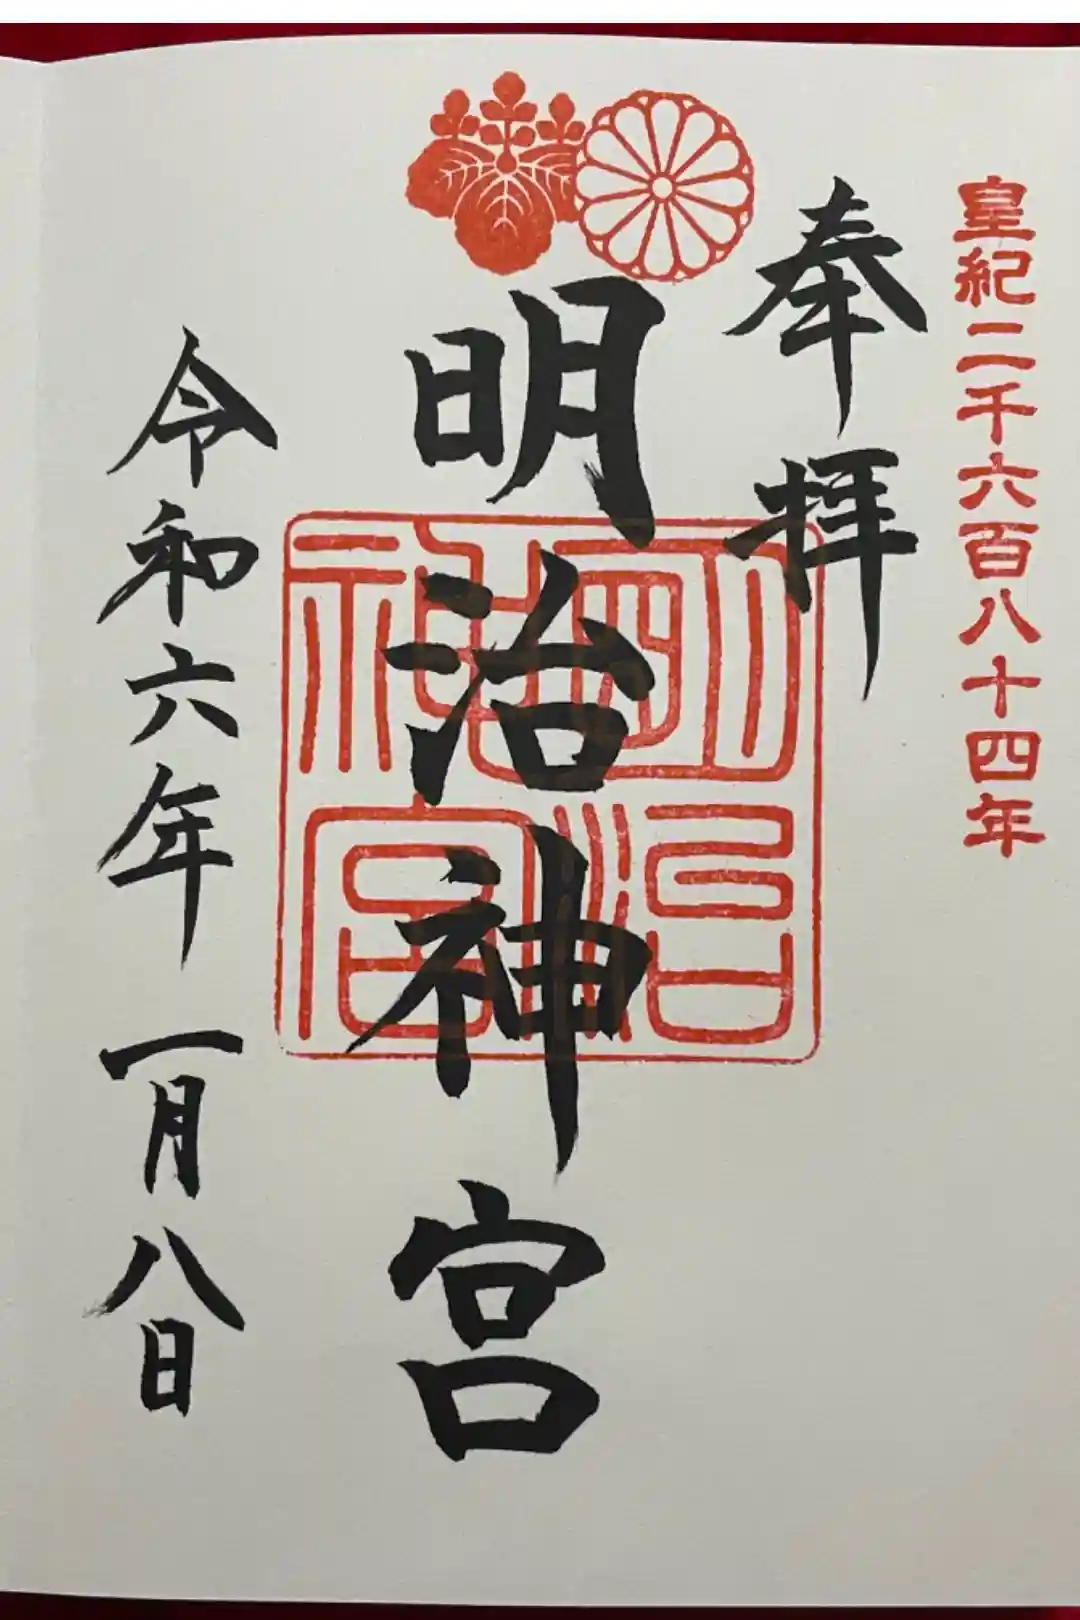 皇紀二千六百八十四年
奉拝
明治神宮
明治神宮
令和六年 一月八日